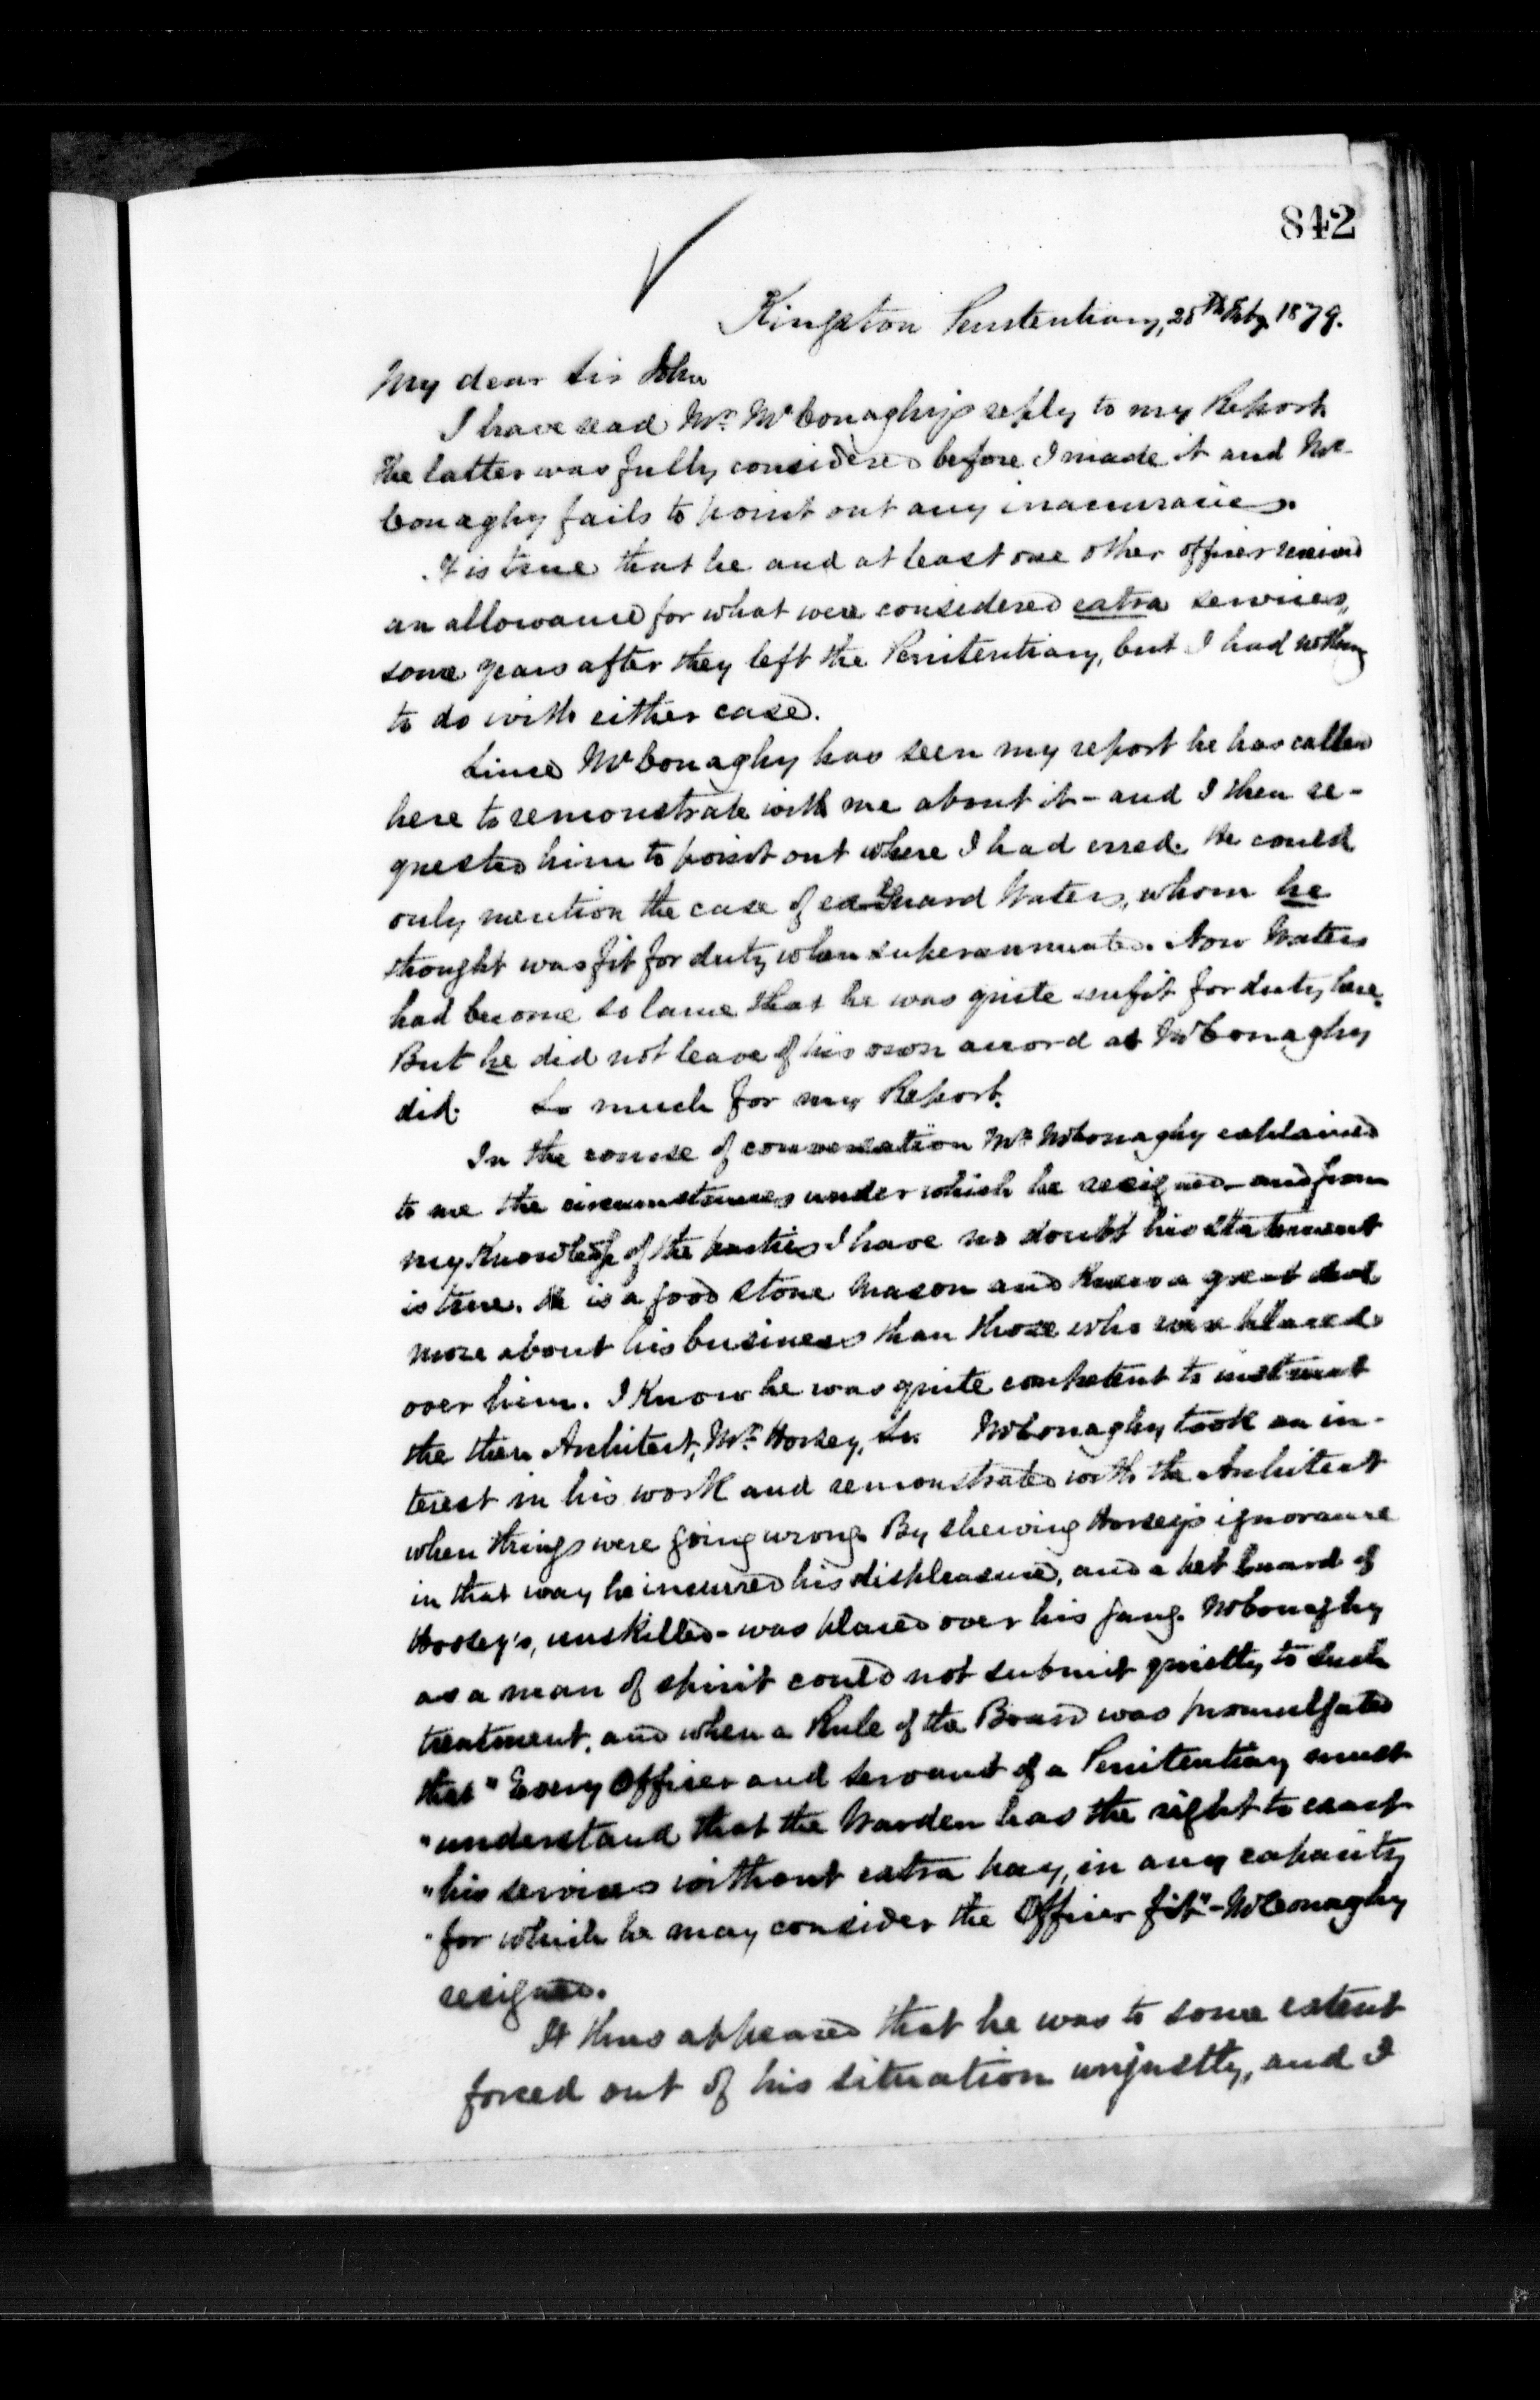 842
Kingston Penitentiary, 25th Feby. 1879.
My dear Sir John
I have read Mr. McConaghy's reply to my Report
The latter was fully considered before I made it and Mc-
Conaghy fails to point out any inaccuracies.
It is true that he and at least one other officer received
an allowance for what were considered extra services,
some years after they left the Penitentiary, but I had nothing
to do with either case.
Since McConaghy has seen my report he has called
here to remonstrate with me about it - and I then re-
quested him to point out where I had erred. He could
only mention the case of ex Guard Waters, whom he
thought was fit for duty when superannuated. Now Waters
had become so lame that he was quite unfit for duty here.
But he did not leave of his own accord as McConaghy
did. So much for my Report.
In the course of conversation Mr. McConaghy explained
to me the circumstances under which he resigned - and from
my Knowledge of the parties I have no doubt his statement
is true. He is a good Stone Mason and Knows a great deal
more about his business than those who were placed
over him. I Know he was quite competent to instruct
the then Architect, Mr. Horsey, Sr. McConaghy took an in-
terest in his work and remonstrated with the Architect
when things were going wrong. By shewing Horsey's ignorance
in that way he incurred his displeasure, and a pet Guard of
Horsey's, unskilled - was placed over his gang. McConaghy
as a man of spirit could not submit quietly to such
treatment, and when a Rule of the Board was promulgated
that "Every Officer and servant of a Penitentiary must
"understand that the Warden has the right to exact
"his services without extra pay, in any capacity
"for which he may consider the Officer fit" - McConaghy
resigned.
It thus appeared that he was to some extent
forced out of his situation unjustly, and I